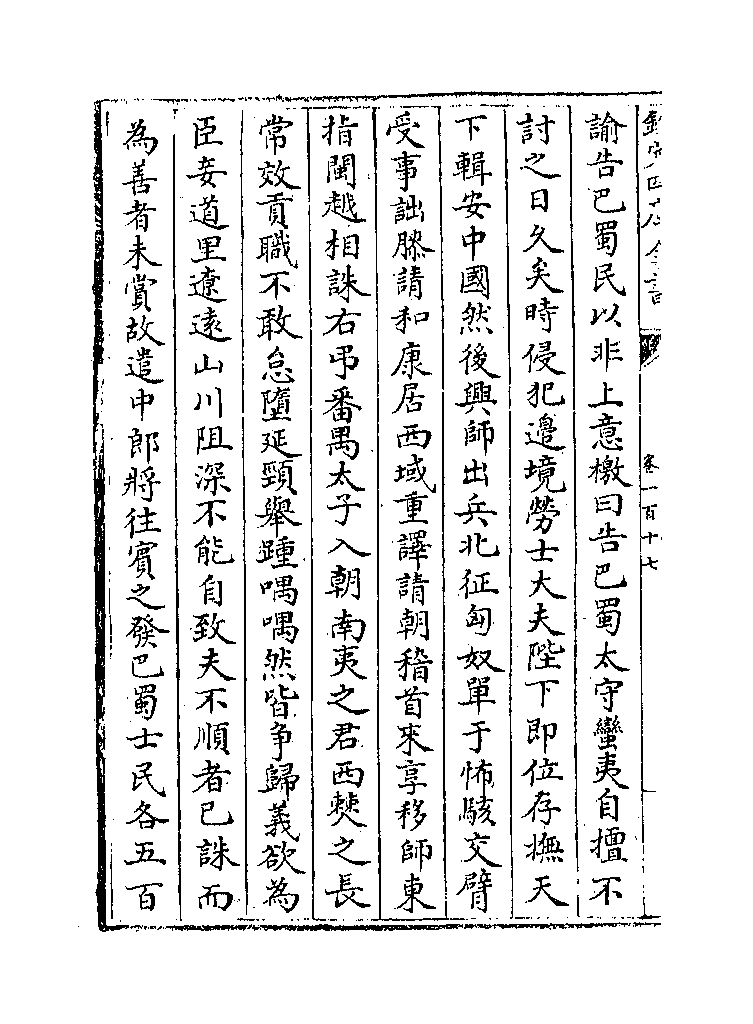 諭告巴蜀民以非上意檄曰告巴蜀太守蠻夷自擅不
討之日久矣時侵犯邉境勞士大夫陛下即位存撫天
下輯安中國然後興師出兵北征匈奴單于怖駭交臂
受事詘膝請和康居西域重譯請朝稽首來享移師東
指閩越相誅右弔番禺太子入朝南夷之君西僰之長
常效貢職不敢怠墮延頸舉踵喁喁然皆争歸義欲為
臣妾道里遼遠山川阻深不能自致夫不順者已誅而
為善者未賞故遣中郎將往賓之發巴蜀士民各五百
卷一百十七